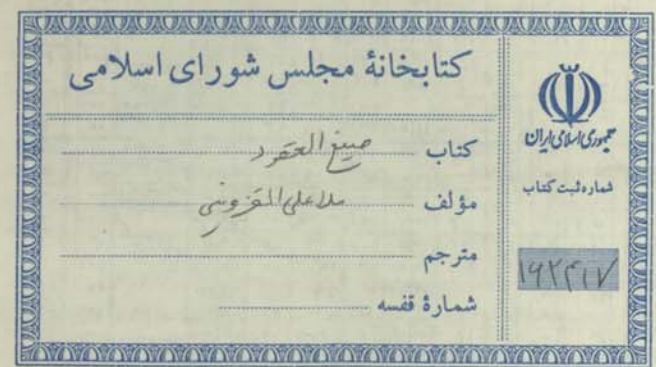 کتابخانهٔ مجلس شورای اسلامی
کتاب صیغ العقود
مؤلف ملا علی القزوینی
مترجم
شمارهٔ قفسه
جمهوری اسلامی ایران
شماره ثبت کتاب
۱۶۲۴۱۷